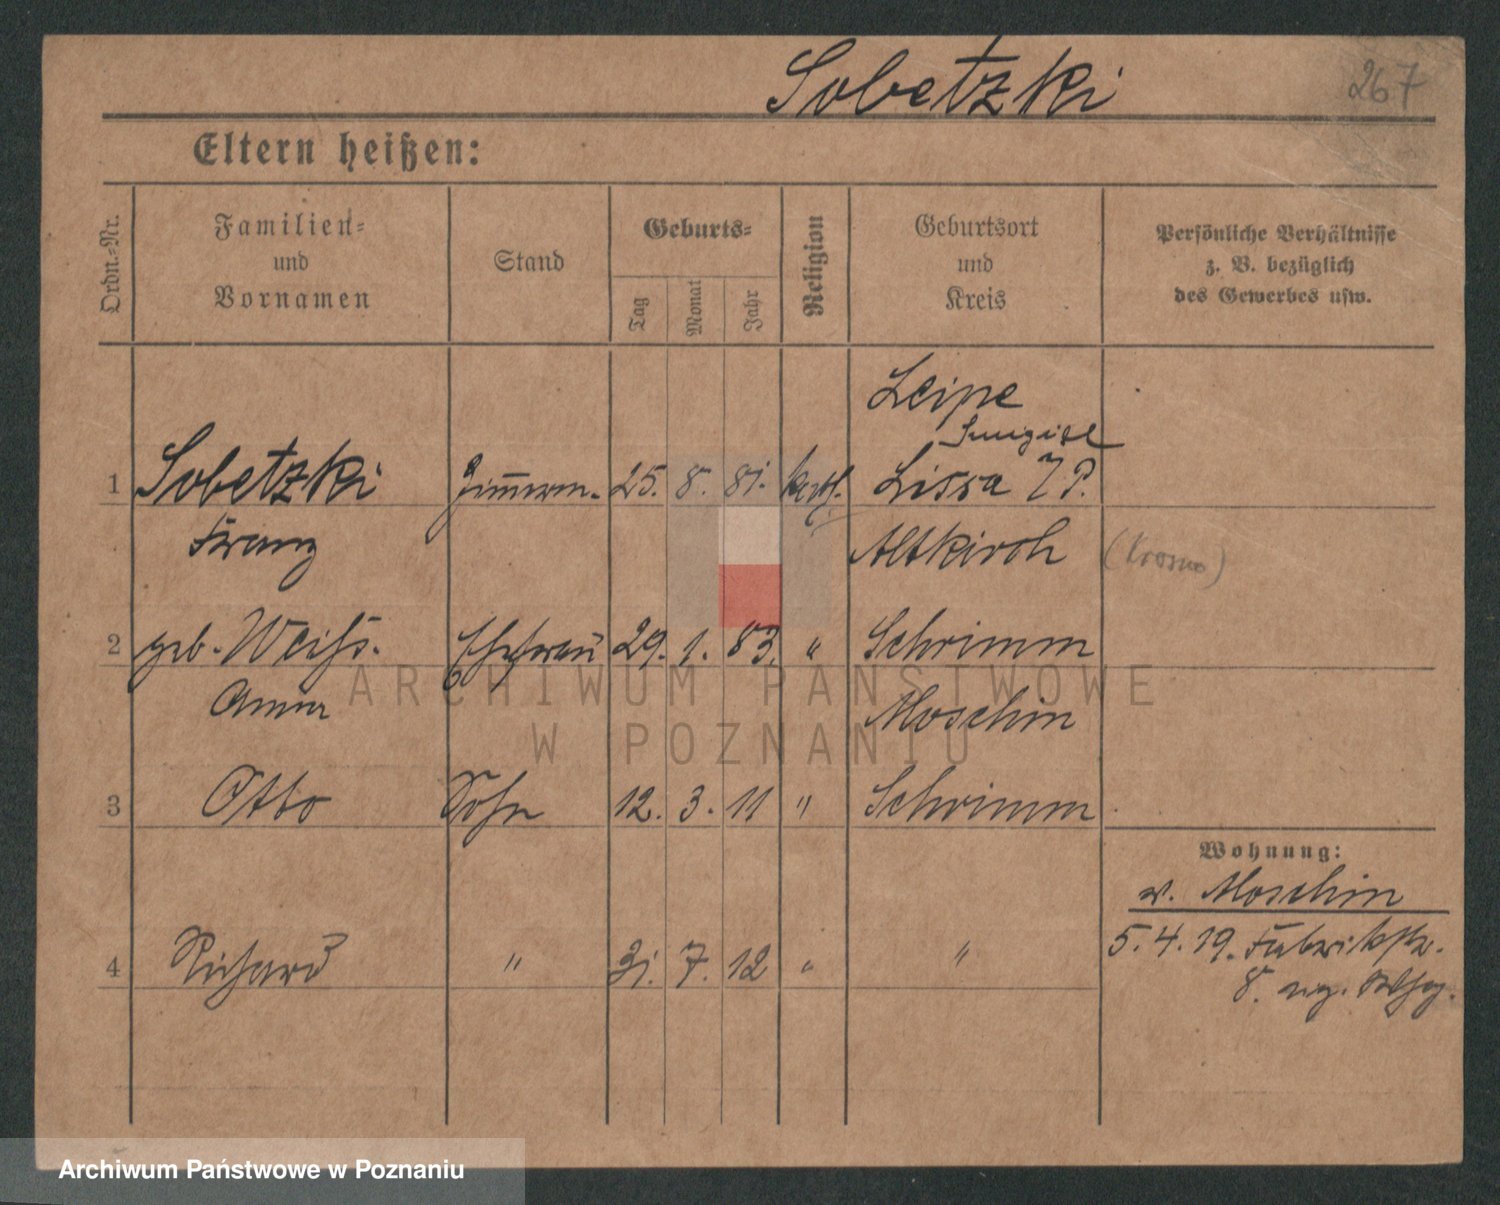 Sobetzki
267
Eltern heißen:
Ordn.-Nr.
Familien-
und
Vornamen
Stand
Geburts-
Tag
Monat
Jahr
Religion
Geburtsort
und
Kreis
Persönliche Verhältnisse
z. B. bezüglich
des Gewerbes usw.
Leipe
1 Sobetzki 25. 8. 81. kath. Lissa
Franz Altkirch (Krosno)
2 geb. Weiß. Ehefrau 29. 1. 83. " Schrimm
Anna Moschin
3 Otto Sohn 12. 3. 11 " Schrimm
Wohnung:
v. Moschin
4 Richard " 31. 7. 12 " "
5. 4. 19. Fabrikstr.
8.
ARCHIWUM PAŃSTWOWE
W POZNANIU
Archiwum Państwowe w Poznaniu